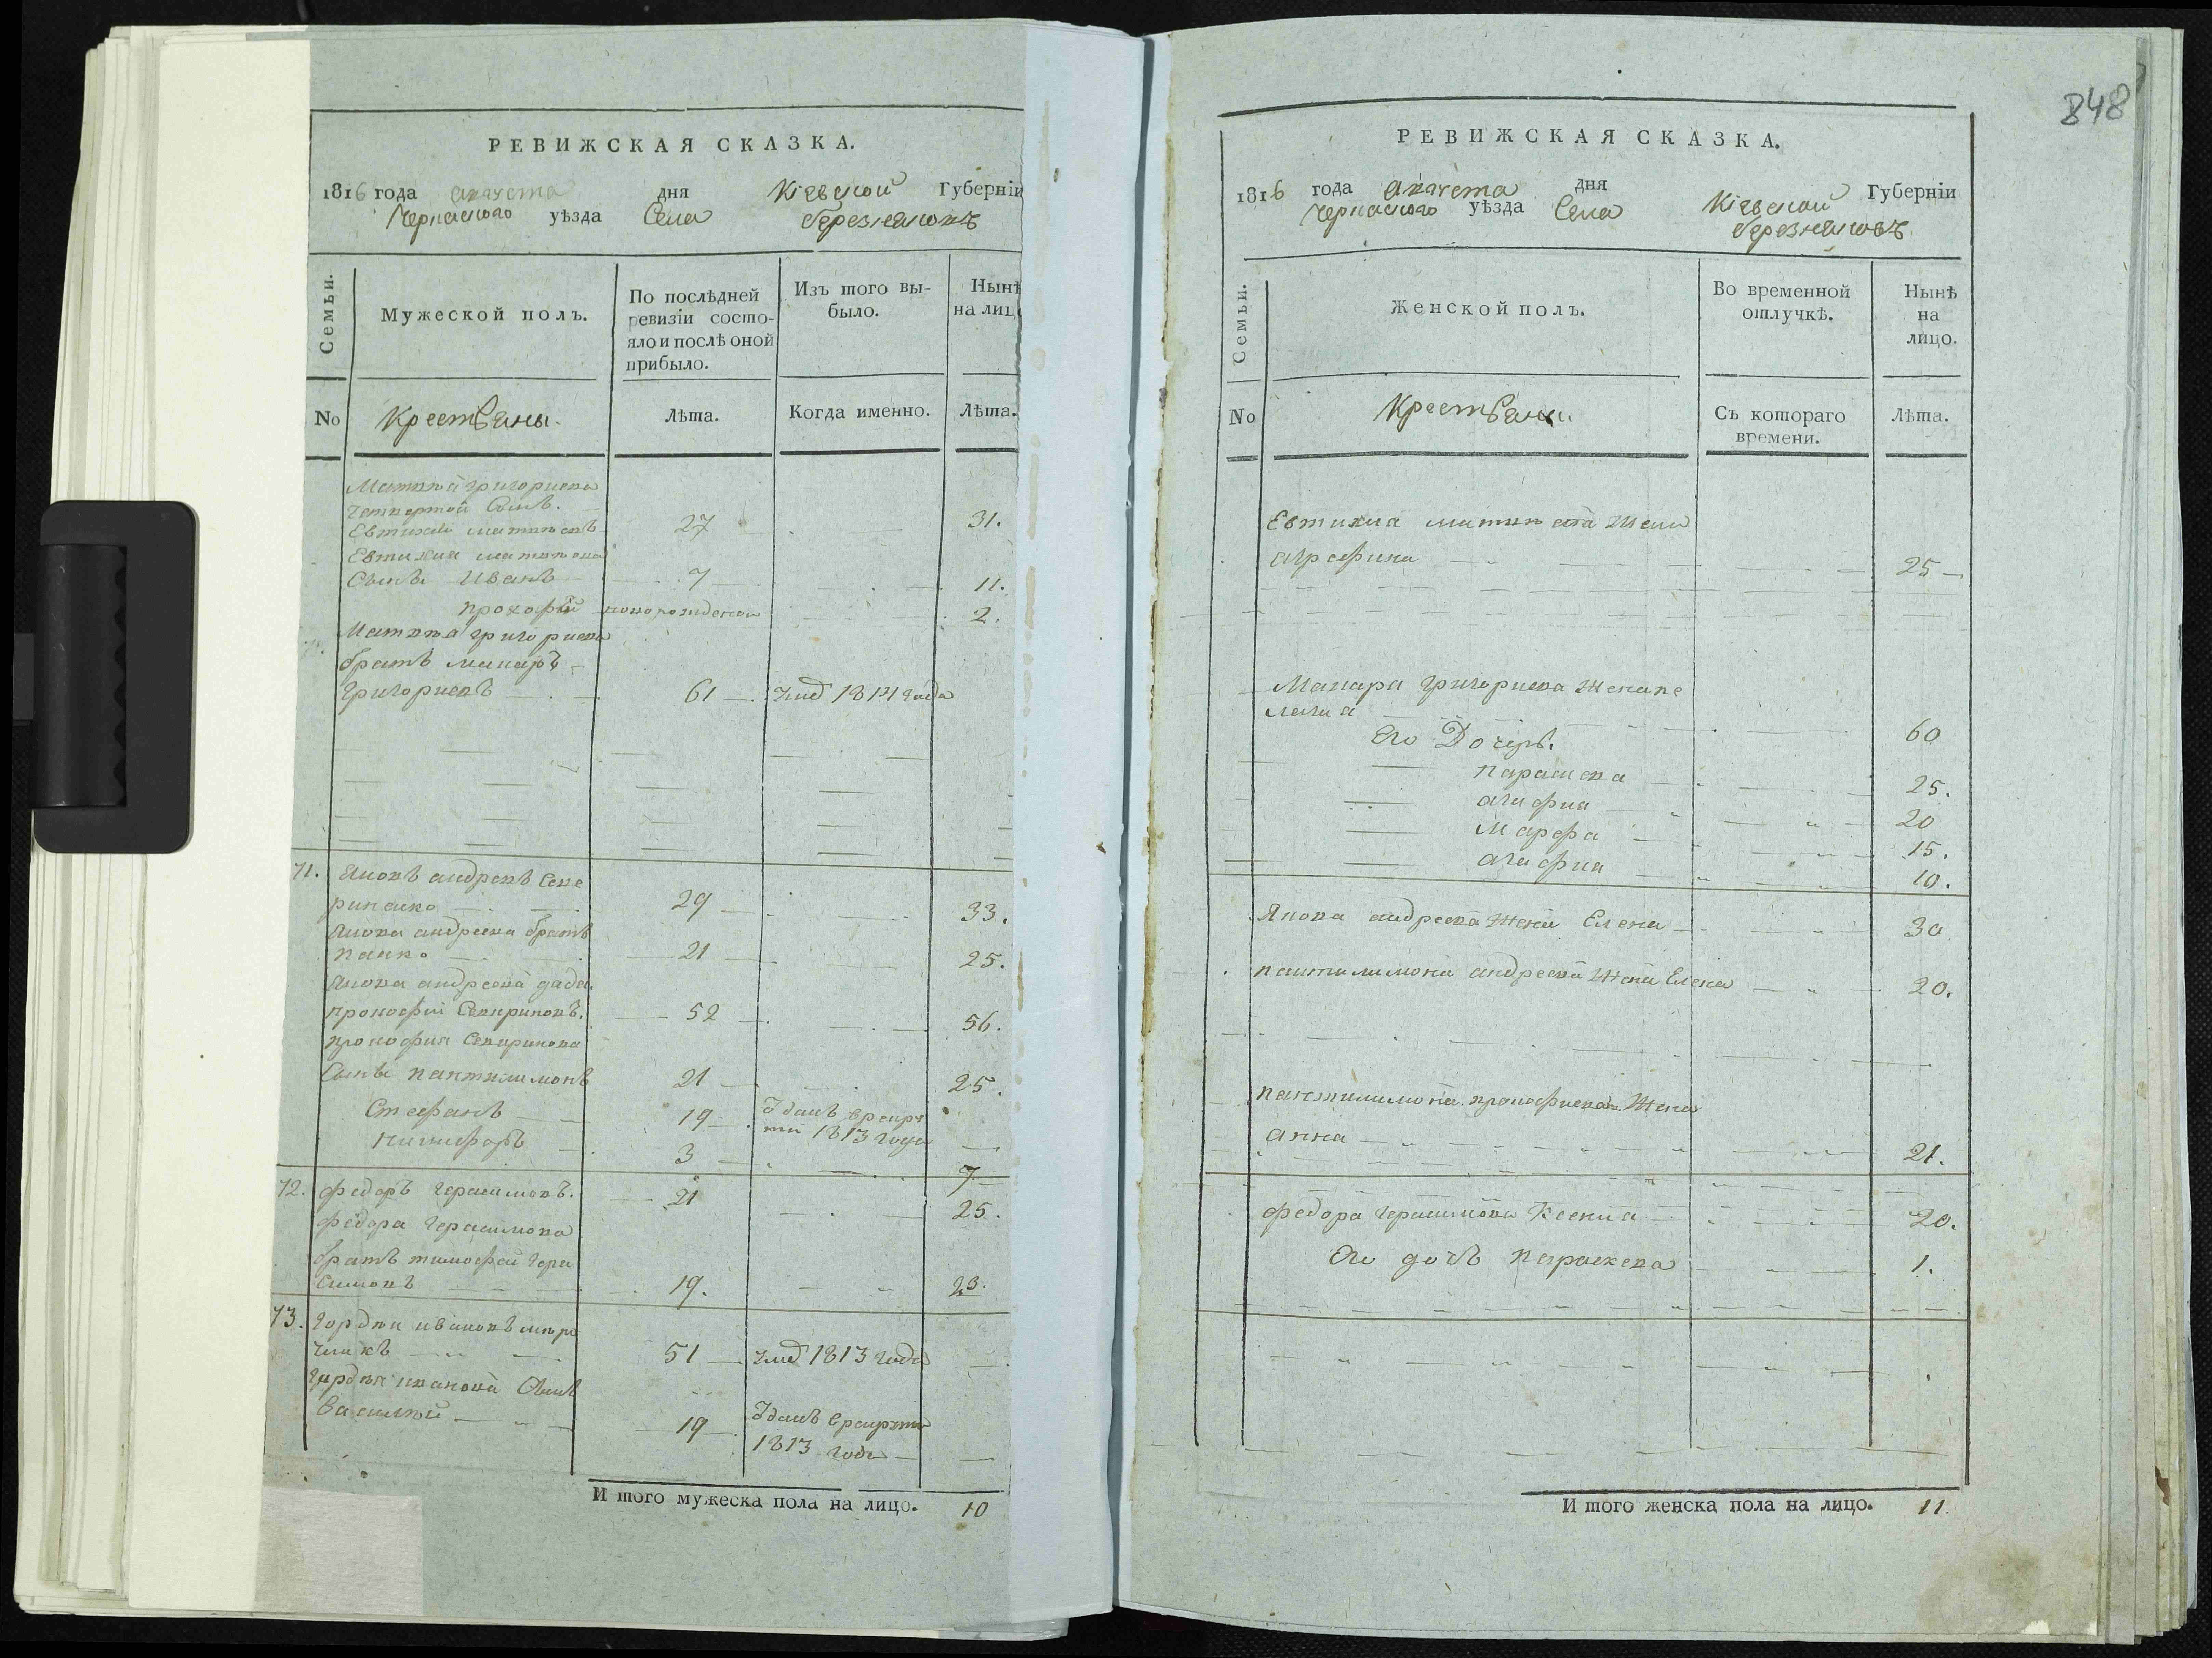 РЕВИЖСКАЯ СКАЗКА.
1816 года августа дня Кіевской Губерніи
Черкаского уѣзда Села Березняковъ
Семьи.
Мужеской полъ.
По послѣдней ревизіи состояло и послѣ оной прибыло.
Изъ того выбыло.
Нынѣ на лиц
No
Крестьяны.
Лѣта.
Когда именно.
Лѣта.
Матвѣя григориева
четвертой Сынъ.
Евтихий матвѣевъ 27 31.
Евтихия матвѣева
Сынъ Иванъ 7 11.
прохофій новорожденои 2.
Матвѣя григориева
братъ макаръ
Григориевъ 61 умѣ 1814 года
71. Яковъ андреевъ Севе
ринско 29 33.
Якова андреева братъ
панко 21 25.
Якова андреева дядя
прокофий Севериновъ. 52 56.
прокофия Северинова
Сынъ пантилимонъ 21 25.
Стефанъ 19 Зданъ врекру
ти 1813 года
никифоръ 3 7
72. федоръ герасимовъ. 21 25.
федора Герасимова
братъ тимофей гера
симовъ 19. 23.
73. Гордѣй ивановъ миро
шникъ 51 умѣ 1813 года
гордѣя иванова Сынъ
Василий 19 Зданъ врекрути
1813 года
И того мужеска пола на лицо. 10
848
РЕВИЖСКАЯ СКАЗКА.
1816 года августа дня Кіевской Губерніи
Черкаского уѣзда Села Березняковъ
Семьи.
Женской полъ.
Во временной отлучкѣ.
Нынѣ на лицо.
No
Крестьяни.
Съ котораго времени.
Лѣта.
Евтихиа матвѣева жена
агрефина 25
Макара григориева жена пе
лагиа 60
Его Дочерѣ.
параскева 25.
агафиа 20
Марфа 15.
агафиа 10.
Якова андреева жена Елена 30
пантилимона андреева жена Елена 20.
пантилимона прокофиева жена
анна 21.
федора герасимова Ксениа 20.
Его дочь параскева 1.
И того женска пола на лицо. 11.